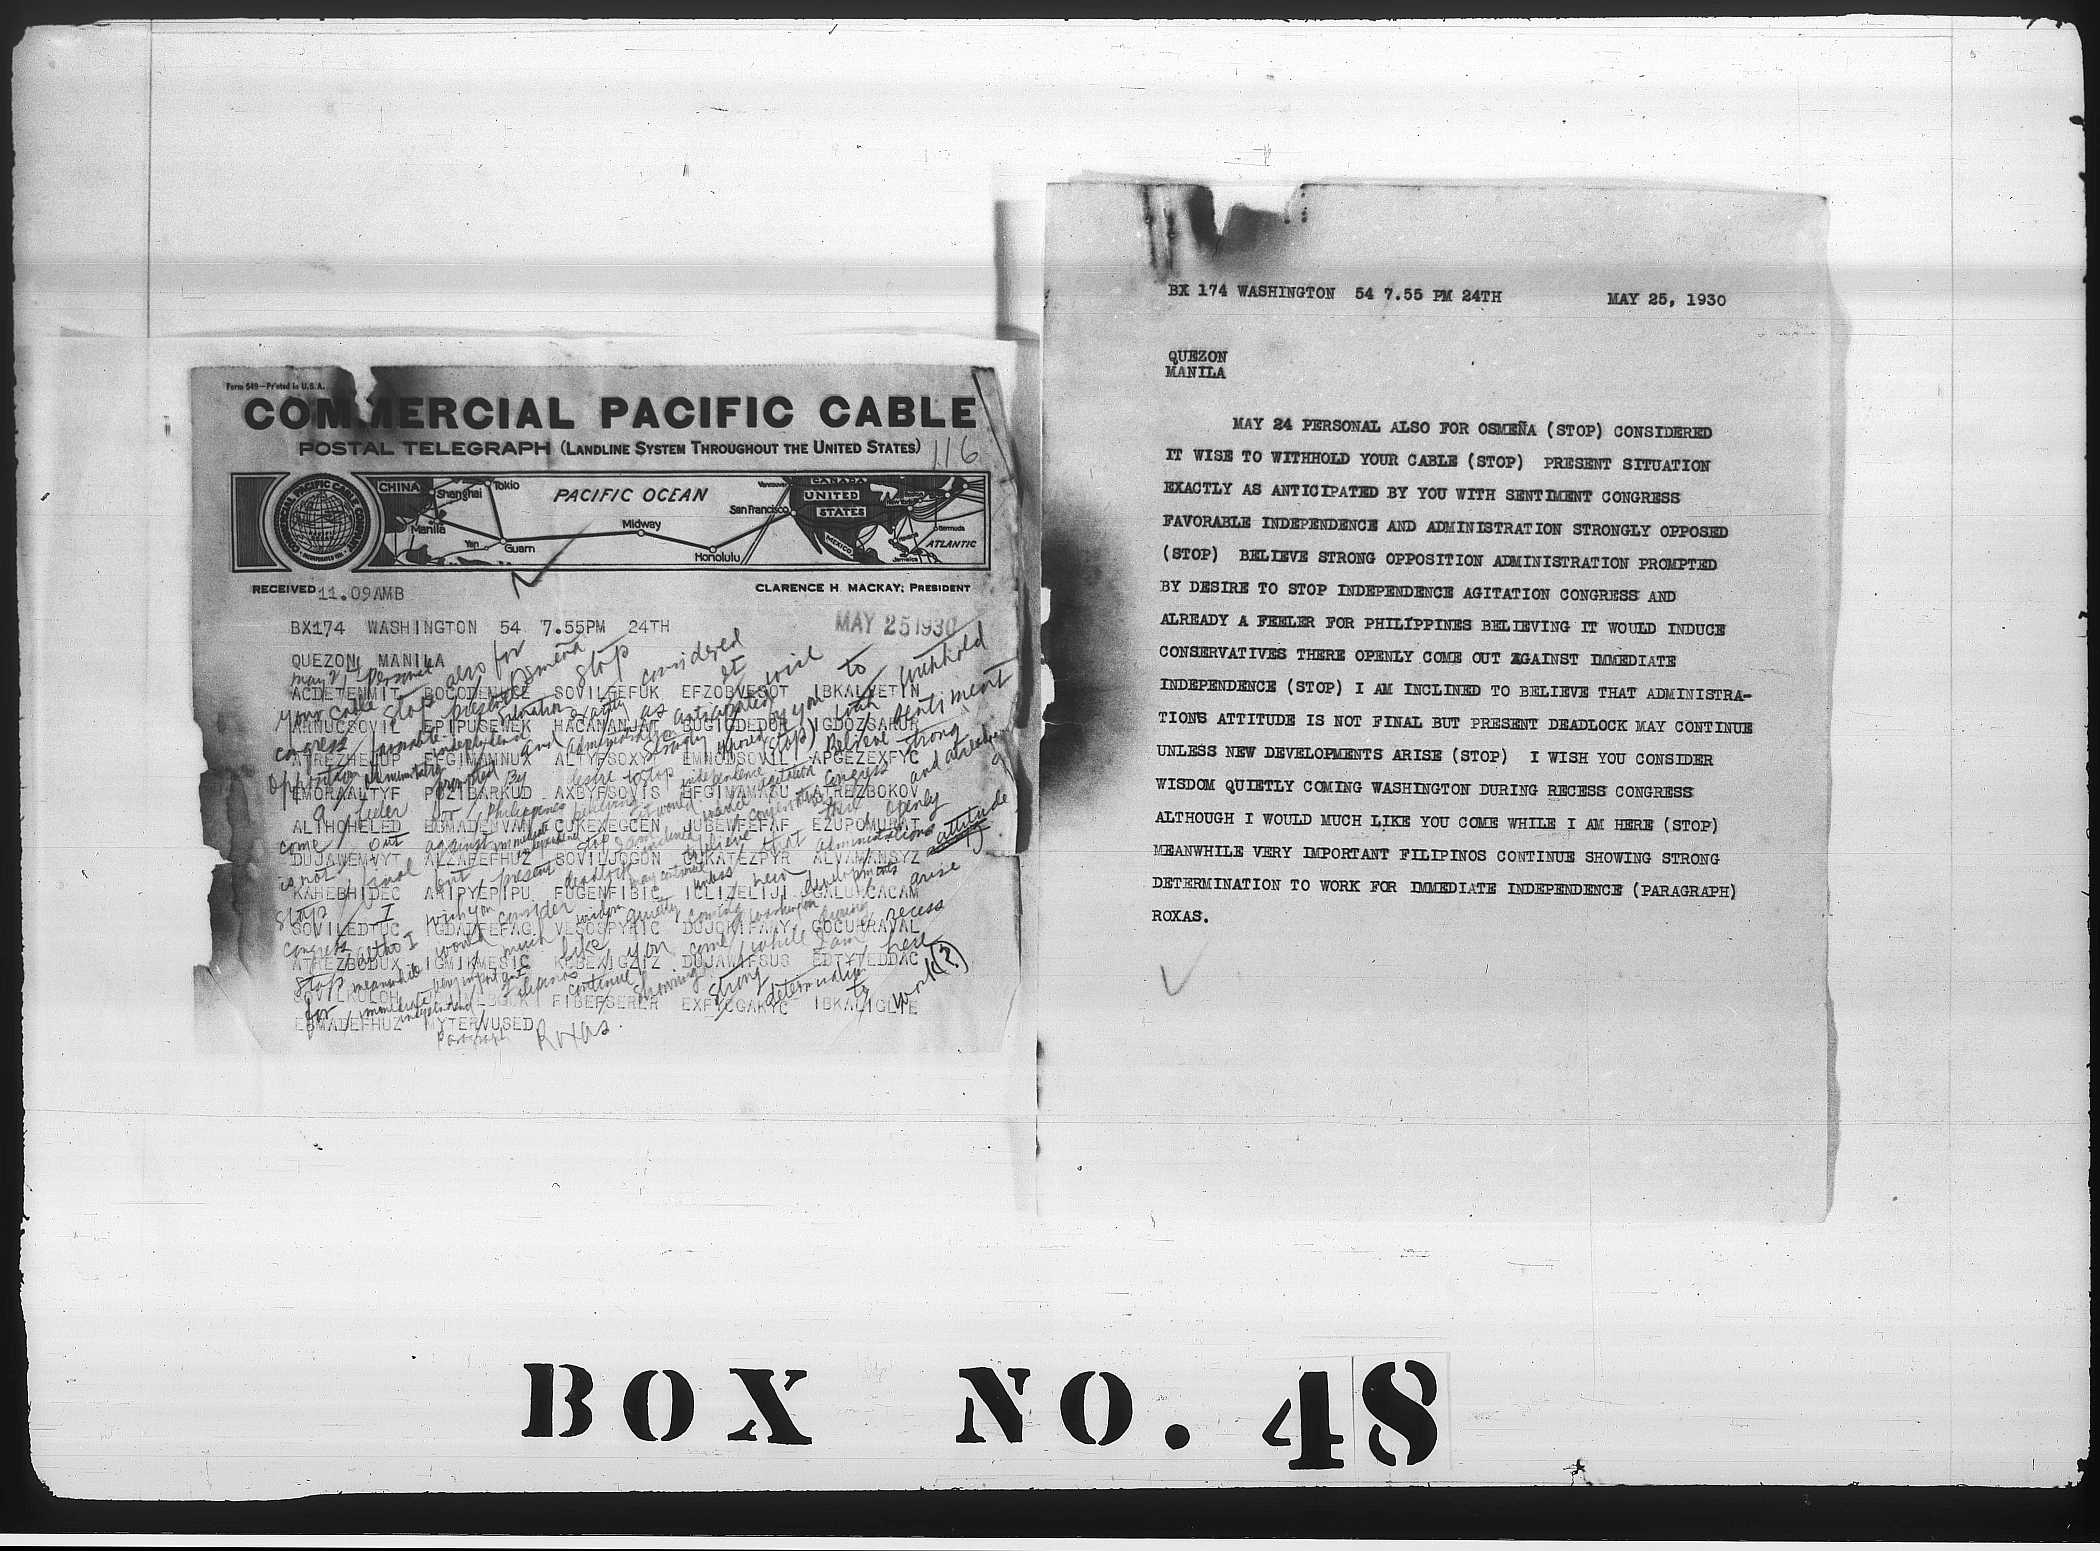 Form 549—Printed in U.S.A.
COMMERCIAL PACIFIC CABLE
POSTAL TELEGRAPH (LANDLINE SYSTEM THROUGHOUT THE UNITED STATES)
116
COMMERCIAL PACIFIC CABLE COMPANY
CHINA
Shanghai
Tokio
Manila
Yap
Guam
PACIFIC OCEAN
Midway
Honolulu
San Francisco
Vancouver
CANADA
UNITED
STATES
MEXICO
Bermuda
ATLANTIC
RECEIVED 11.09AMB
CLARENCE H. MACKAY, PRESIDENT
BX174 WASHINGTON 54 7.55PM 24TH
MAY 25 1930
QUEZON MANILA
May 24 Personal also for Osmeña stop considered it wise to withhold
ACDETENMIT BOCODENUCE SOVILGEFUK EFZOBVESOT IBKALVETYN
your cable stop present situation exactly as anticipated by you with sentiment
ARNUCSOVIL EPIPUSEMEK HACANANJAT BUGIDDEDOR IGDOZSAHUR
congress favorable independence and administration strongly opposed (stop) Believe strong
ATREZHEJUP EFGIMAMNUX ALTYFSOXYT EMNODSOVIL APGEZEXFYC
opposition administration prompted By desire to stop independence agitation congress and already
EMORAALTYF PUZIBARKUD AXBYFSOVIS EFGIMAMZU ATREZBOKOV
a feeler for Philippines believing it would induce conservatives there openly
ALTHOHELED EBMADEMVAN CUKEXEGCEN JUBEWFEFAF EZUPOMURAT
come out against immediate independence stop I am inclined to believe that administrations attitude
DUJAWEMVYT ALZAREFHUZ SOVILJOGON CUKATEZPYR ALVAMANSYZ
is not final but present deadlock may continue unless new developments arise
KAHEBHIDEC ARIPYEPIPU FUGENFIBIC ICLIZELIJI GALUCCACAM
stop I wish you consider wisdom quietly coming Washington during recess
SOVILEDTUC IGDATFEFAG VESOSPYRIC DUJOKIFAAY GOCURRAVAL
congress altho I would much like you come while I am here
ATREZBODUX IGMIKMESIC KOBEXIGZIZ DUJAWIFSUS EDTYTEDDAC
stop meanwhile very important Filipinos continue showing strong determination to work (?)
FIBEFSERER EXFYCGAKYC IBKALIGLIE
for immediate independence
EBMADEFHUZ MYTERVUSED
Paragraph Roxas.
BX 174 WASHINGTON 54 7.55 PM 24TH MAY 25, 1930
QUEZON
MANILA
MAY 24 PERSONAL ALSO FOR OSMEÑA (STOP) CONSIDERED
IT WISE TO WITHHOLD YOUR CABLE (STOP) PRESENT SITUATION
EXACTLY AS ANTICIPATED BY YOU WITH SENTIMENT CONGRESS
FAVORABLE INDEPENDENCE AND ADMINISTRATION STRONGLY OPPOSED
(STOP) BELIEVE STRONG OPPOSITION ADMINISTRATION PROMPTED
BY DESIRE TO STOP INDEPENDENCE AGITATION CONGRESS AND
ALREADY A FEELER FOR PHILIPPINES BELIEVING IT WOULD INDUCE
CONSERVATIVES THERE OPENLY COME OUT AGAINST IMMEDIATE
INDEPENDENCE (STOP) I AM INCLINED TO BELIEVE THAT ADMINISTRA-
TIONS ATTITUDE IS NOT FINAL BUT PRESENT DEADLOCK MAY CONTINUE
UNLESS NEW DEVELOPMENTS ARISE (STOP) I WISH YOU CONSIDER
WISDOM QUIETLY COMING WASHINGTON DURING RECESS CONGRESS
ALTHOUGH I WOULD MUCH LIKE YOU COME WHILE I AM HERE (STOP)
MEANWHILE VERY IMPORTANT FILIPINOS CONTINUE SHOWING STRONG
DETERMINATION TO WORK FOR IMMEDIATE INDEPENDENCE (PARAGRAPH)
ROXAS.
BOX NO. 48